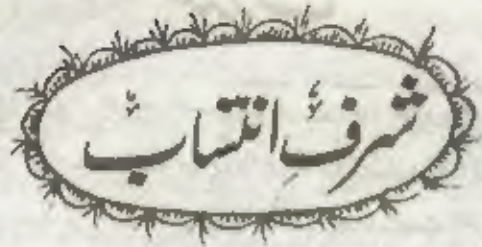 شرفِ انتساب